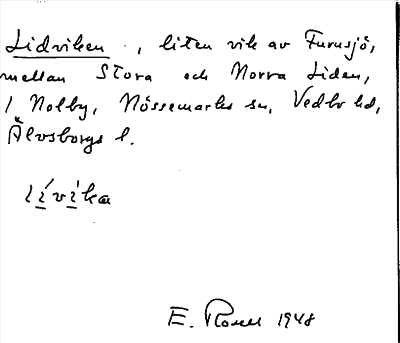 Lidviken, liten vik av Furusjö,
mellan Stora och Norra Liden,
i Nolby, Nössemarks sn, Vedbo hd,
Älvsborgs l.
lívìka
E. Rosell 1948